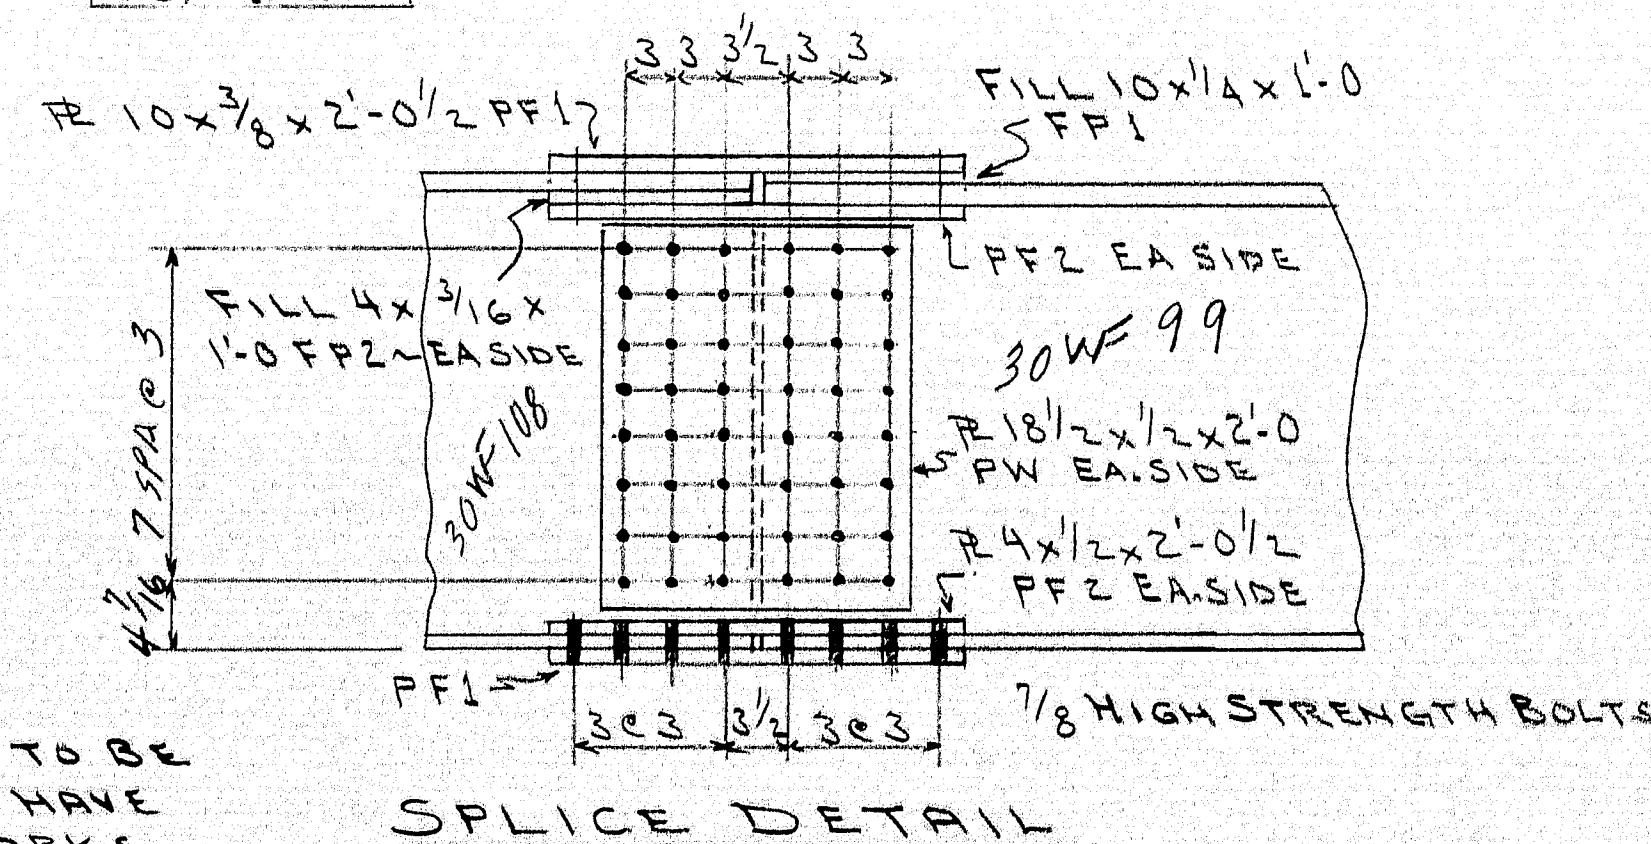 3 3 3 1/2 3 3
PL 10 x 3/8 x 2'-0 1/2 PF1
FILL 10 x 1/4 x 1'-0
FP1
PF2 EA SIDE
FILL 4 x 3/16 x
1'-0 FP2~EA SIDE
30 WF 99
30 WF 108
7 SPA @ 3
4 7/16
PL 18 1/2 x 1/2 x 2'-0
PW EA.SIDE
PL 4 x 1/2 x 2'-0 1/2
PF2 EA.SIDE
PF1
3@3 3 1/2 3@3
7/8 HIGH STRENGTH BOLTS
TO BE
HAVE
SPLICE DETAIL